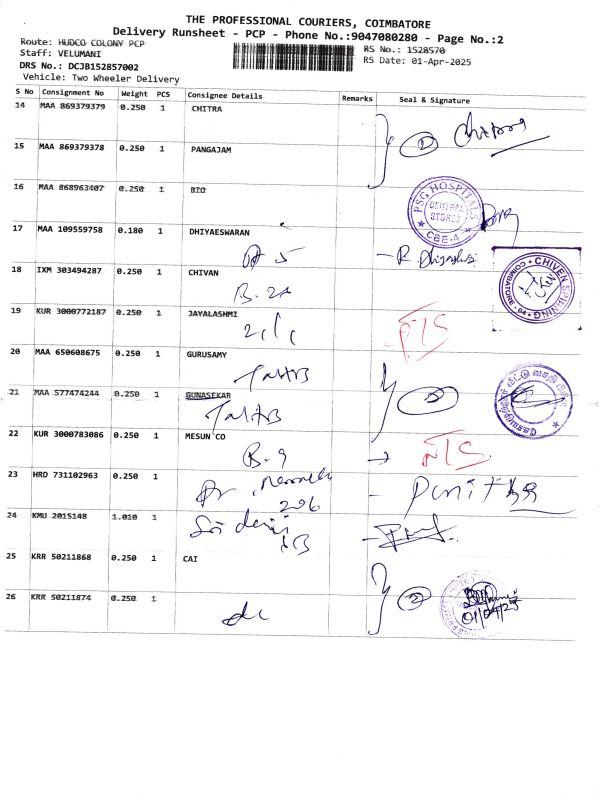 THE PROFESSIONAL COURIERS, COIMBATORE
Delivery Runsheet - PCP - Phone No.:9047080280 - Page No.:2
Route: HUDCO COLONY PCP
Staff: VELUMANI
DRS No.: DCJB152857002
Vehicle: Two Wheeler Delivery
RS No.: 1528570
RS Date: 01-Apr-2025
S No Consignment No Weight PCS Consignee Details Remarks Seal & Signature
14 MAA 869379379 0.250 1 CHITRA
2 Chitra
15 MAA 869379378 0.250 1 PANGAJAM
16 MAA 868963407 0.250 1 BIO
PSG HOSPITALS
CENTRAL STORES
CBE-4
17 MAA 109559758 0.180 1 DHIYAESWARAN
18 IXM 303494287 0.250 1 CHIVAN
B. 2A
CHIVEN SPINNING
COIMBATORE - 04
19 KUR 3000772187 0.250 1 JAYALASHMI
20 MAA 650608675 0.250 1 GURUSAMY
21 MAA 577474244 0.250 1 GUNASEKAR
2
22 KUR 3000783086 0.250 1 MESUN CO
B. 9
23 HRD 731102963 0.250 1
206
24 KMU 2015148 1.010 1
25 KRR 50211868 0.250 1 CAI
26 KRR 50211874 0.250 1
2
01/04/25